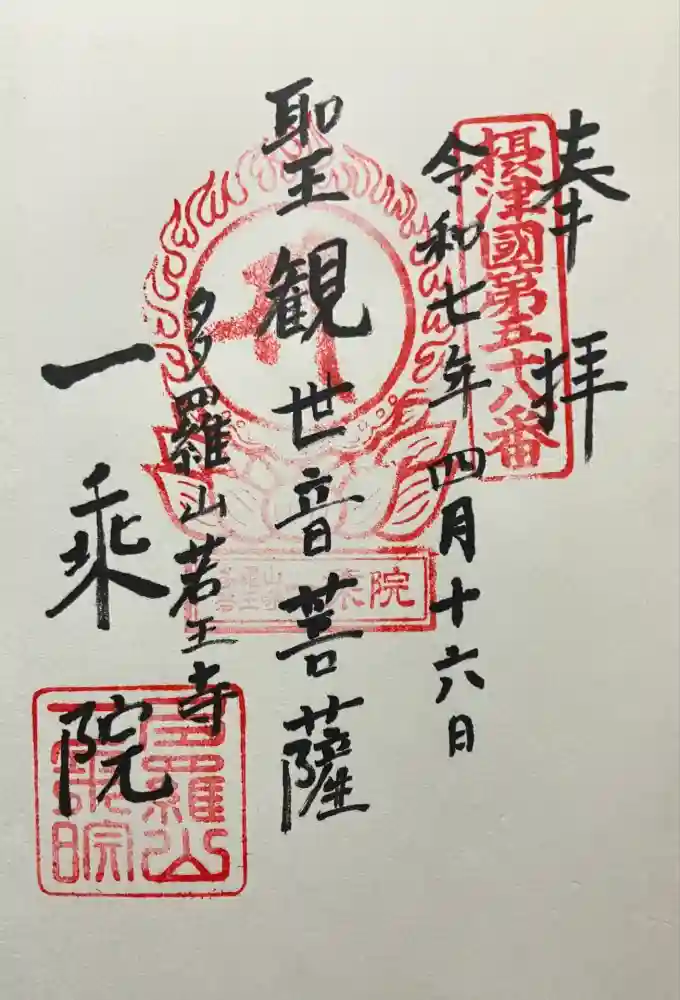 奉拝
摂津國第五十八番
令和七年四月十六日
聖観世音菩薩
多羅山若王寺
一乗院
院
多羅山
一乗院